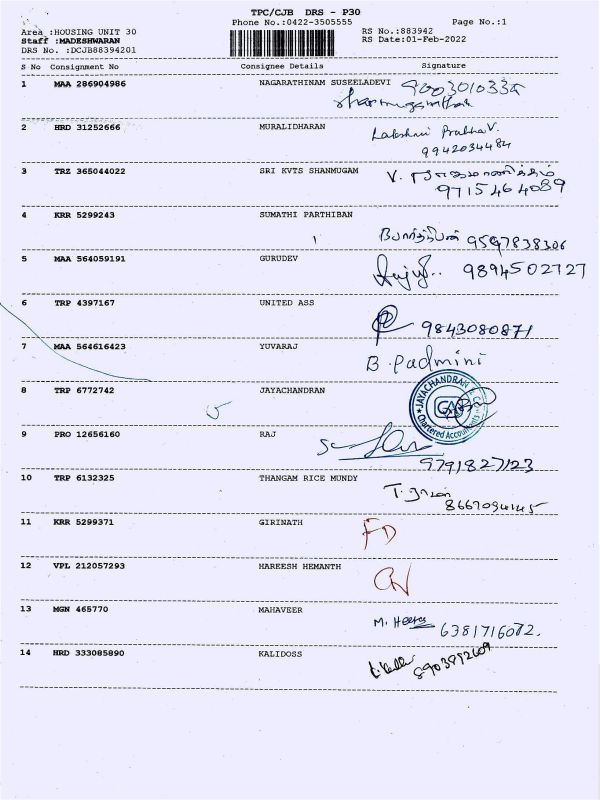 TPC/CJB DRS - P30
Phone No.:0422-3505555
Page No.:1
Area :HOUSING UNIT 30
Staff :MADESHWARAN
DRS No. :DCJB88394201
RS No.:883942
RS Date:01-Feb-2022
S No Consignment No Consignee Details Signature
1 MAA 286904986 NAGARATHINAM SUSEELADEVI
2 HRD 31252666 MURALIDHARAN Lakshmi Prabha V.
9942034484
3 TRZ 365044022 SRI KVTS SHANMUGAM V.
9715464089
4 KRR 5299243 SUMATHI PARTHIBAN
5 MAA 564059191 GURUDEV 9894502727
6 TRP 4397167 UNITED ASS 9843080871
7 MAA 564616423 YUVARAJ B. Padmini
8 TRP 6772742 JAYACHANDRAN JAYACHANDRAN & CO CA Chartered Accountants
9 PRO 12656160 RAJ
9791827123
10 TRP 6132325 THANGAM RICE MUNDY
8667094145
11 KRR 5299371 GIRINATH FD
12 VPL 212057293 HAREESH HEMANTH
13 MGN 465770 MAHAVEER M.
6381716072.
14 HRD 333085890 KALIDOSS